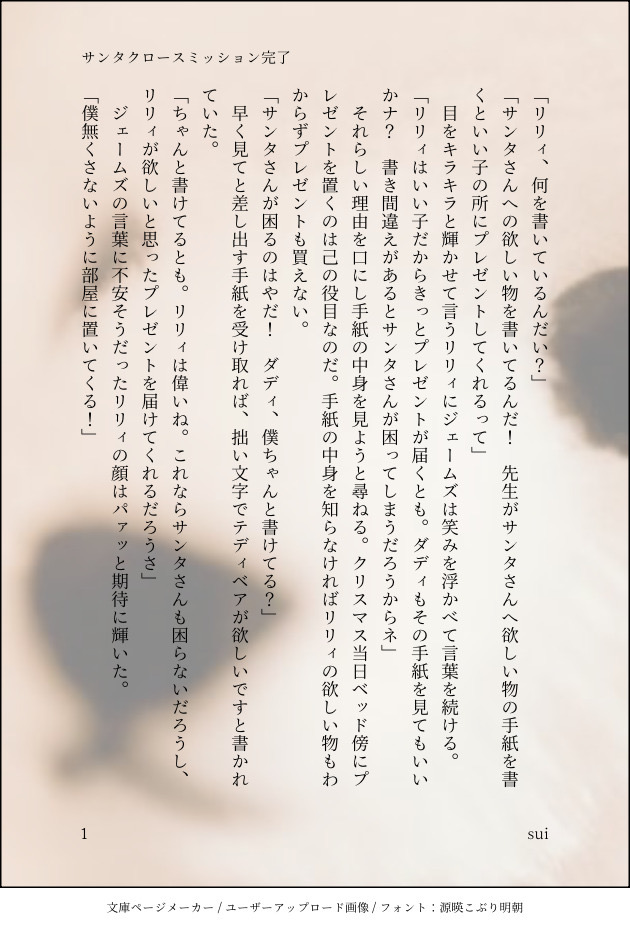 サンタクロースミッション完了
「リリィ、何を書いているんだい？」
「サンタさんへの欲しい物を書いてるんだ！　先生がサンタさんへ欲しい物の手紙を書
くといい子の所にプレゼントしてくれるって」
　目をキラキラと輝かせて言うリリィにジェームズは笑みを浮かべて言葉を続ける。
「リリィはいい子だからきっとプレゼントが届くとも。ダディもその手紙を見てもいい
かナ？　書き間違えがあるとサンタさんが困ってしまうだろうからネ」
　それらしい理由を口にし手紙の中身を見ようと尋ねる。クリスマス当日ベッド傍にプ
レゼントを置くのは己の役目なのだ。手紙の中身を知らなければリリィの欲しい物もわ
からずプレゼントも買えない。
「サンタさんが困るのはやだ！　ダディ、僕ちゃんと書けてる？」
　早く見てと差し出す手紙を受け取れば、拙い文字でテディベアが欲しいですと書かれ
ていた。
「ちゃんと書けてるとも。リリィは偉いね。これならサンタさんも困らないだろうし、
リリィが欲しいと思ったプレゼントを届けてくれるだろうさ」
　ジェームズの言葉に不安そうだったリリィの顔はパァッと期待に輝いた。
「僕無くさないように部屋に置いてくる！」
1
sui
文庫ページメーカー / ユーザーアップロード画像 / フォント：源暎こぶり明朝